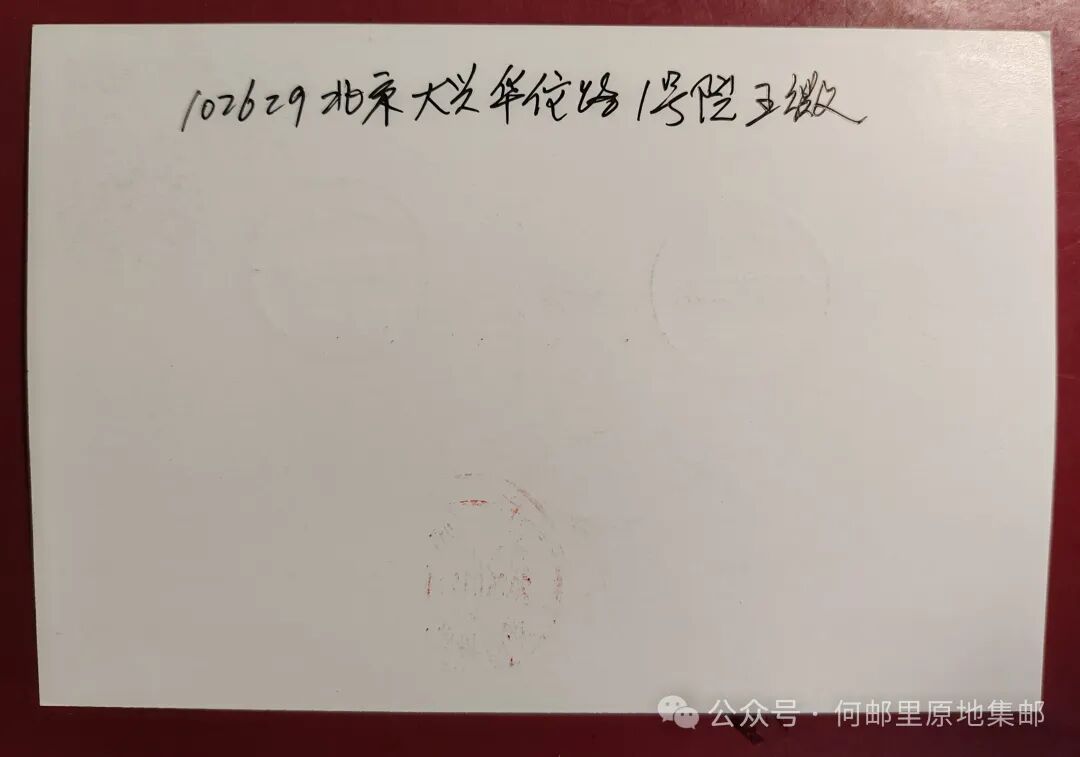 102629北京大兴华佗路1号院王
公众号·何邮里原地集邮